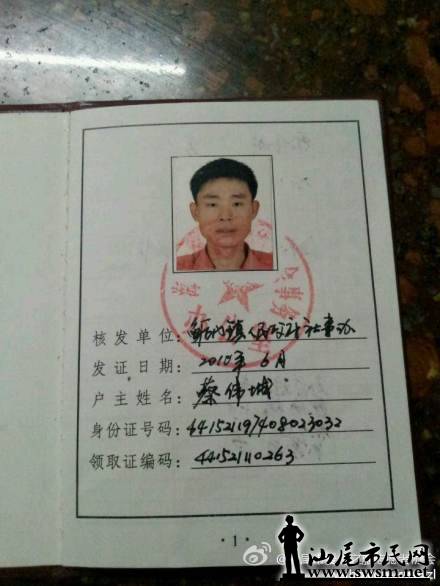 核发单位: 鲘门镇人民政府社事办
发证日期: 2010年6月
户主姓名: 蔡伟城
身份证号码: 441521197408023032
领取证编码: 44152110263
·1·
汕尾市民网
www.swsm.net